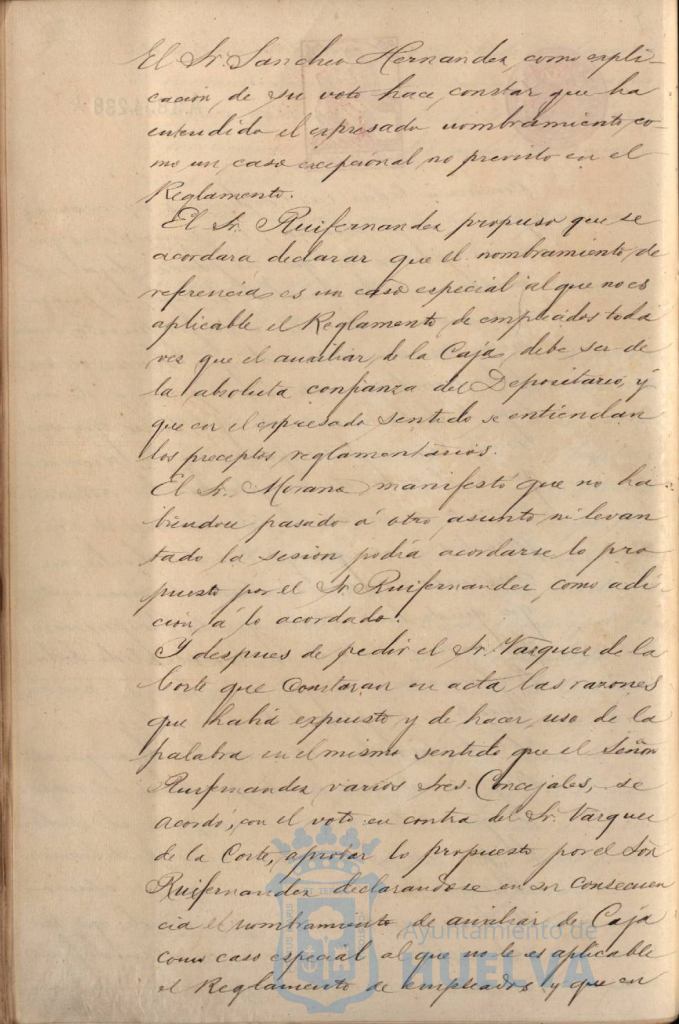 El Sr. Sanchez Hernandez, como expli-
cacion, de su voto hace, constar que ha
entendido el espresado nombramiento, co-
mo un, caso excepcional, no previsto en el
Reglamento.
El Sr. Ruifernandez propuso que se
acordara declarar que el nombramiento, de
referencia, es un caso especial al que no es
aplicable el Reglamento, de empleados toda
vez que el auxiliar, de la Caja, debe ser de
la absoluta confianza del Depositario, y
que en el espresado sentido se entiendan
los preceptos, reglamentarios.
El Sr. Morano manifestó que no ha-
biendose pasado á otro, asunto, ni levan
tado la sesion podia acordarse lo pro
puesto por el Sr. Ruifernandez, como adi-
cion, á lo acordado.
Y despues de pedir el Sr. Vazquez de la
Corte que constaran en acta las razones
que habia expuesto y de hacer, uso de la
palabra en el mismo sentido que el Señor
Ruifernandez varios Sres. Concejales, se
acordó, con el voto en contra del Sr. Vazquez
de la Corte, aprobar lo propuesto por el Sor
Ruifernandez declarandose en su consecuen
cia el nombramiento de auxiliar de Caja
como caso especial al que no le es aplicable
el Reglamento de empleados y que en
Ayuntamiento de
HUELVA